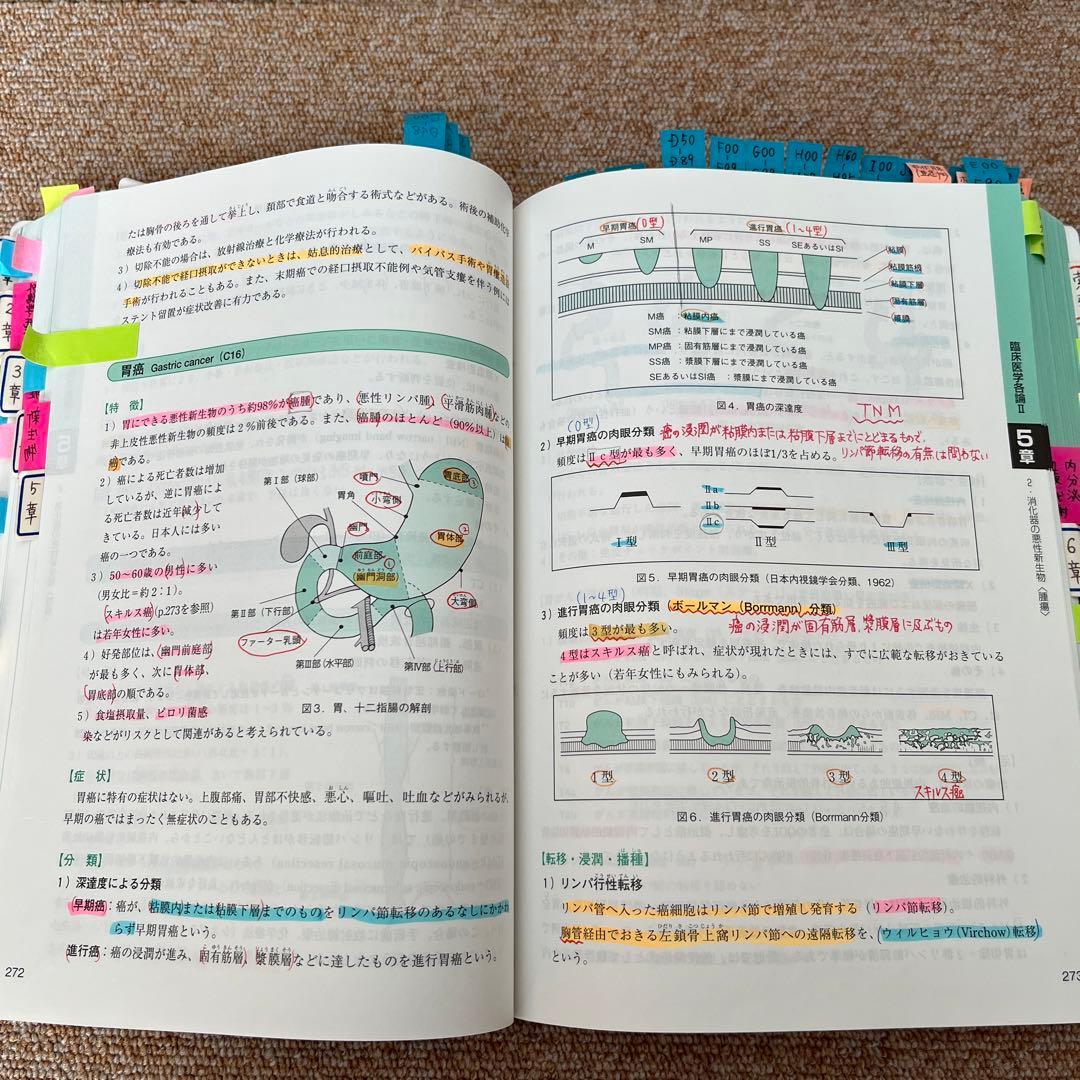 たは胸骨の後ろを通して挙上し、頚部で食道と吻合する術式などがある。術後の補助化学
療法も有効である。
3）切除不能の場合は、放射線治療と化学療法が行われる。
4）切除不能で経口摂取ができないときは、姑息的治療として、バイパス手術や胃瘻
手術が行われることもある。また、末期癌での経口摂取不能例や気管支瘻を伴う例には
ステント留置が症状改善に有力である。
胃癌 Gastric cancer（C16）
【特　徴】
1）胃にできる悪性新生物のうち約98％が癌腫であり、悪性リンパ腫、平滑筋肉腫などの
非上皮性悪性新生物の頻度は２％前後である。また、癌腫のほとんど（90％以上）は
癌である。
2）癌による死亡者数は増加
しているが、逆に胃癌によ
る死亡者数は近年減少して
きている。日本人には多い
癌の一つである。
3）50〜60歳の男性に多い
（男女比＝約2：1）。
スキルス癌(p.273を参照)
は若年女性に多い。
4）好発部位は、幽門前庭部
が最も多く、次に胃体部、
胃底部の順である。
5）食塩摂取量、ピロリ菌感
染などがリスクとして関連があると考えられている。
第Ⅰ部（球部）
噴門
胃角
小彎側
幽門
胃底部 ③
②
胃体部
前庭部
①
幽門洞部
大彎側
第Ⅱ部（下行部）
ファーター乳頭
第Ⅲ部（水平部）
第Ⅳ部（上行部）
図3．胃、十二指腸の解剖
【症　状】
胃癌に特有の症状はない。上腹部痛、胃部不快感、悪心、嘔吐、吐血などがみられるが、
早期の癌ではまったく無症状のこともある。
【分　類】
1）深達度による分類
早期癌：癌が、粘膜内または粘膜下層までのものをリンパ節転移のあるなしにかかわ
らず早期胃癌という。
進行癌：癌の浸潤が進み、固有筋層、漿膜層などに達したものを進行胃癌という。
272
D50
D89
F00
G00
H00
H60
I00
E00
早期胃癌(0型)
進行胃癌(1〜4型)
M
SM
MP
SS
SEあるいはSI
粘膜
粘膜筋板
粘膜下層
固有筋層
漿膜
M癌　：粘膜内癌
SM癌　：粘膜下層にまで浸潤している癌
MP癌　：固有筋層にまで浸潤している癌
SS癌　：漿膜下層にまで浸潤している癌
SEあるいはSI癌　：漿膜にまで浸潤している癌
図4．胃癌の深達度
TNM
(0型)
2）早期胃癌の肉眼分類 癌の浸潤が粘膜内または粘膜下層までにとどまるもので、
リンパ節転移の有無は問わない
頻度はⅡc型が最も多く、早期胃癌のほぼ1/3を占める。
Ⅱa
Ⅱb
Ⅱc
Ⅰ型
Ⅱ型
Ⅲ型
図5．早期胃癌の肉眼分類（日本内視鏡学会分類、1962）
(1〜4型)
3）進行胃癌の肉眼分類（ボールマン（Borrmann）分類）
頻度は3型が最も多い。
癌の浸潤が固有筋層、漿膜層に及ぶもの
4型はスキルス癌と呼ばれ、症状が現れたときには、すでに広範な転移がおきている
ことが多い（若年女性にもみられる）。
1型
2型
3型
4型
スキルス癌
図6．進行胃癌の肉眼分類（Borrmann分類）
【転移・浸潤・播種】
1）リンパ行性転移
リンパ管へ入った癌細胞はリンパ節で増殖し発育する（リンパ節転移）。
胸管経由でおきる左鎖骨上窩リンパ節への遠隔転移を、（ウィルヒョウ(Virchow)転移）
という。
273
臨床医学各論Ⅱ
5章
2．消化器の悪性新生物〈腫瘍〉
2章
3章
5章
新生物
内分泌
6章